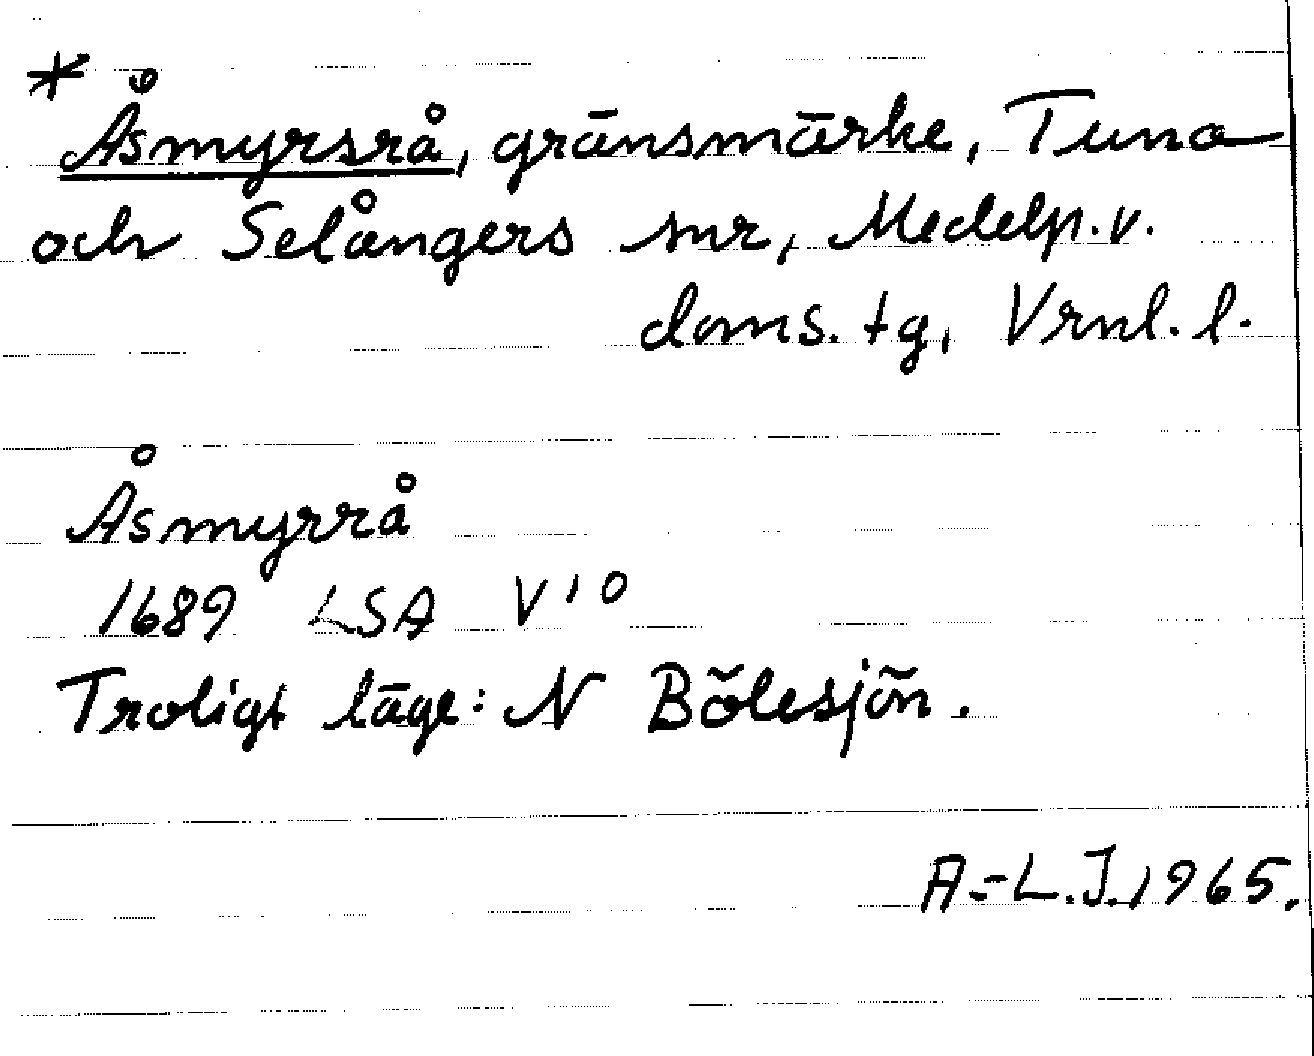 * Åsmyrsrå, gränsmärke, Tuna
och Selångers snr, Medelp. v.
doms. tg, Vrnl. l.
Åsmyrrå
1689 LSA V 10
Troligt läge: N Bölesjön.
A-L.J. 1965.